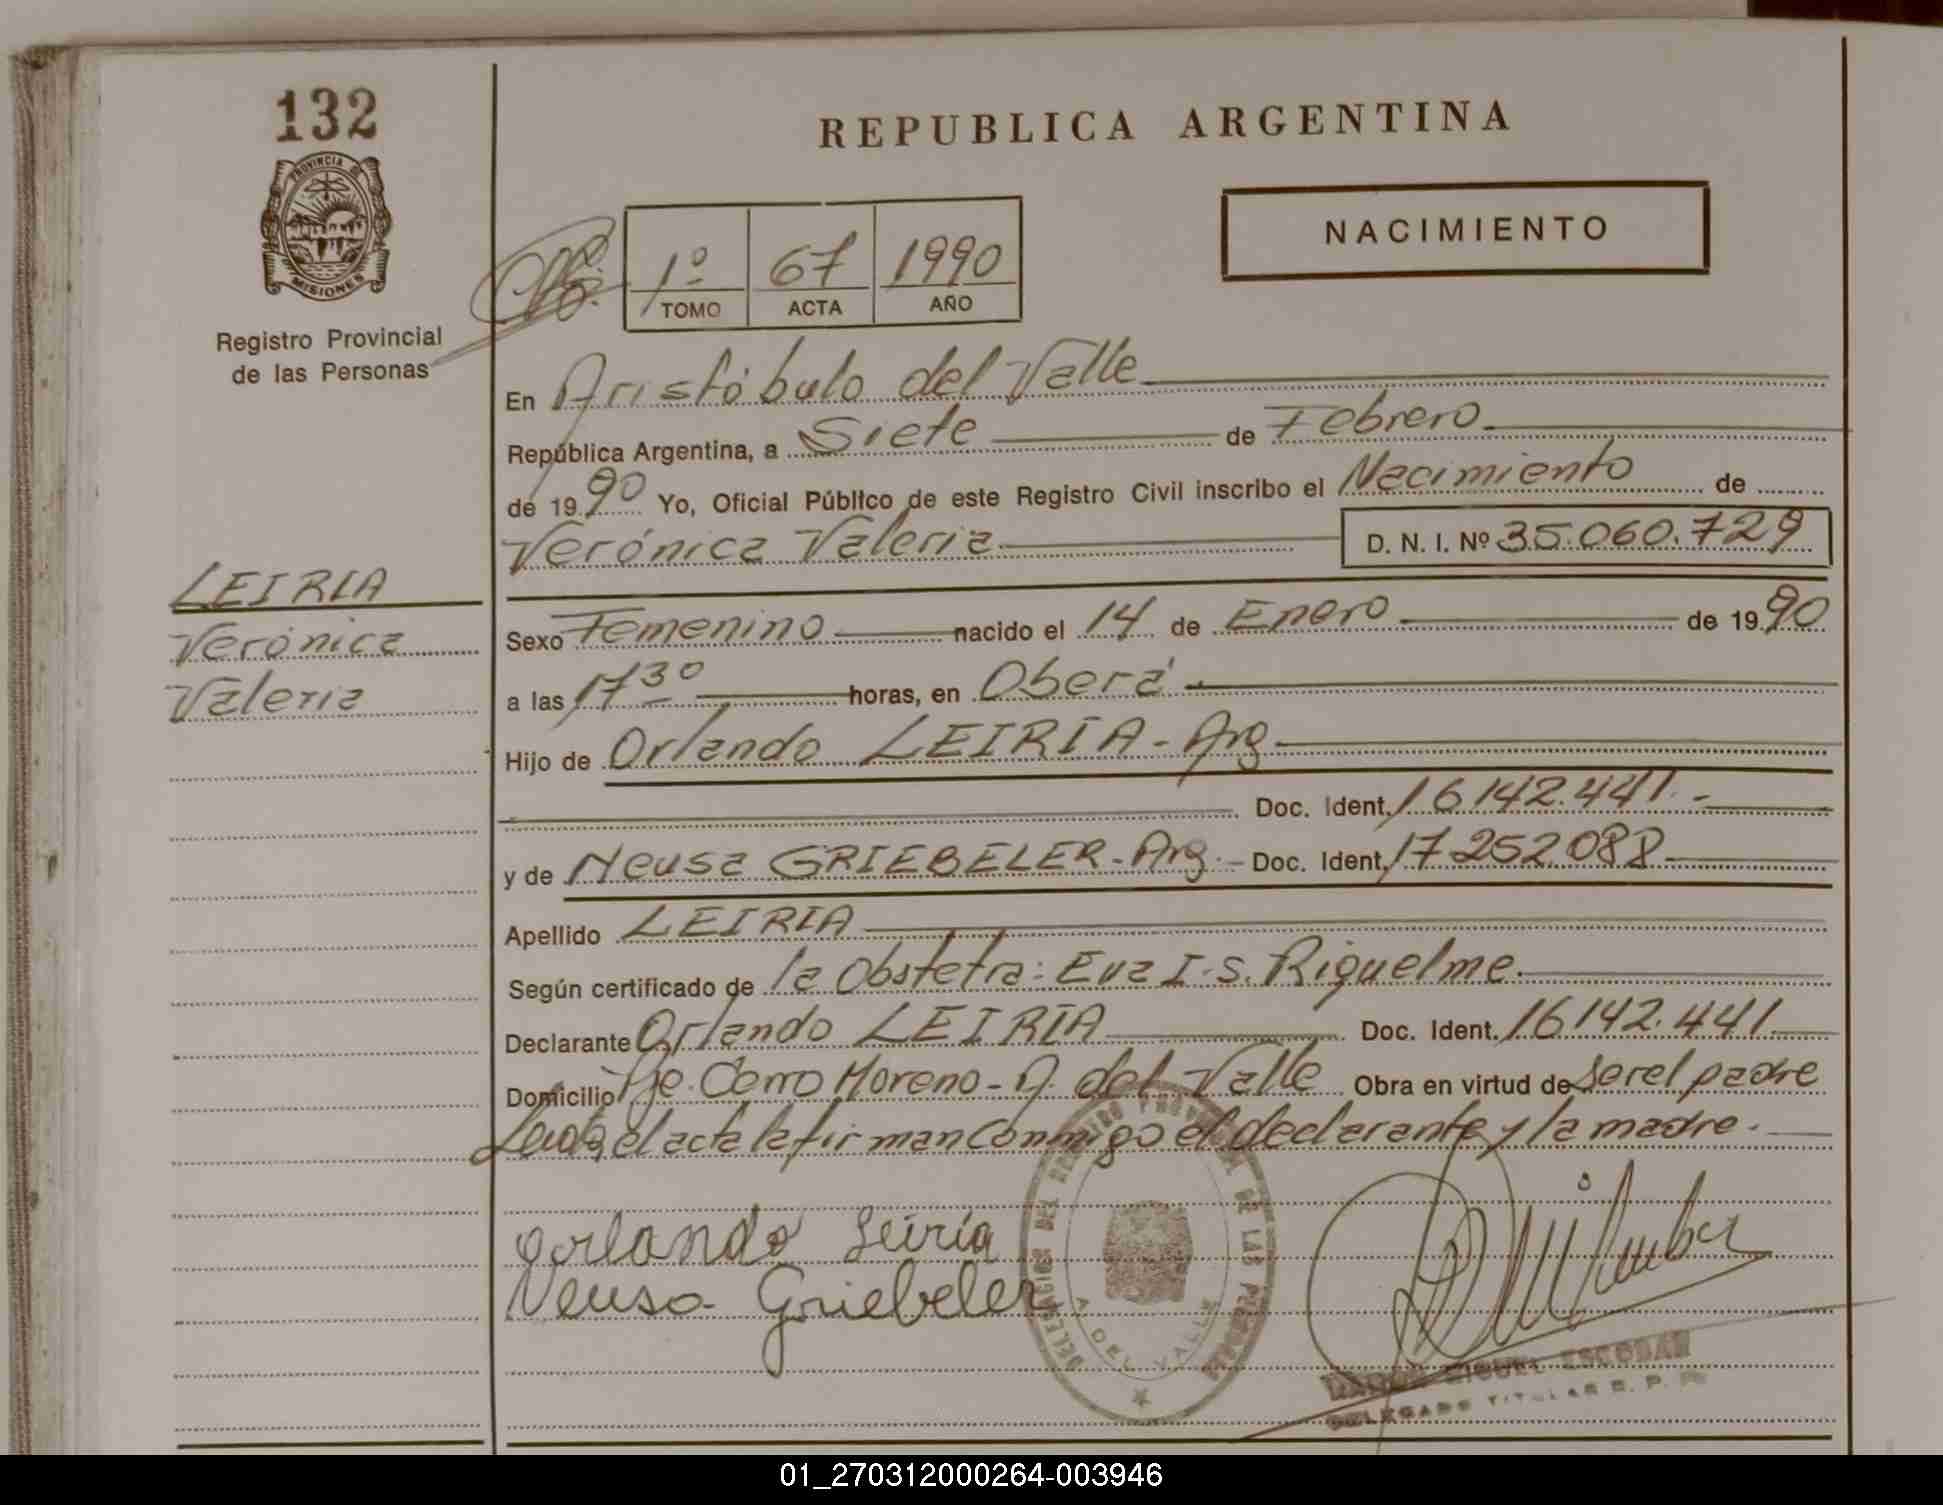 132
PROVINCIA DE
MISIONES
Registro Provincial
de las Personas
REPUBLICA ARGENTINA
NACIMIENTO
1º 67 1990
TOMO ACTA AÑO
En Aristóbulo del Valle
República Argentina, a Siete de Febrero
de 1990 Yo, Oficial Público de este Registro Civil inscribo el Nacimiento de
Verónica Valeria D. N. I. Nº 35.060.729
LEIRIA
Verónica
Valeria
Sexo Femenino nacido el 14 de Enero de 1990
a las 17 30 horas, en Oberá
Hijo de Orlando LEIRIA - Arg
Doc. Ident. 16142.441.-
y de Neusa GRIEBELER - Arg.- Doc. Ident. 17252088
Apellido LEIRIA
Según certificado de la Obstetra: Eva I. S. Riquelme.
Declarante Orlando LEIRIA Doc. Ident. 16142.441
Domicilio Pje. Cerro Moreno - A. del Valle Obra en virtud de ser el padre
Leida, el acta la firman conmigo el declarante y la madre.
Orlando Leiria
Neusa Griebeler
DELEGACION DEL REGISTRO PROVINCIAL DE LAS PERSONAS
A DEL VALLE
MIGUEL ESCOBAR
DELEGADO TITULAR R. P. P.
01_270312000264-003946